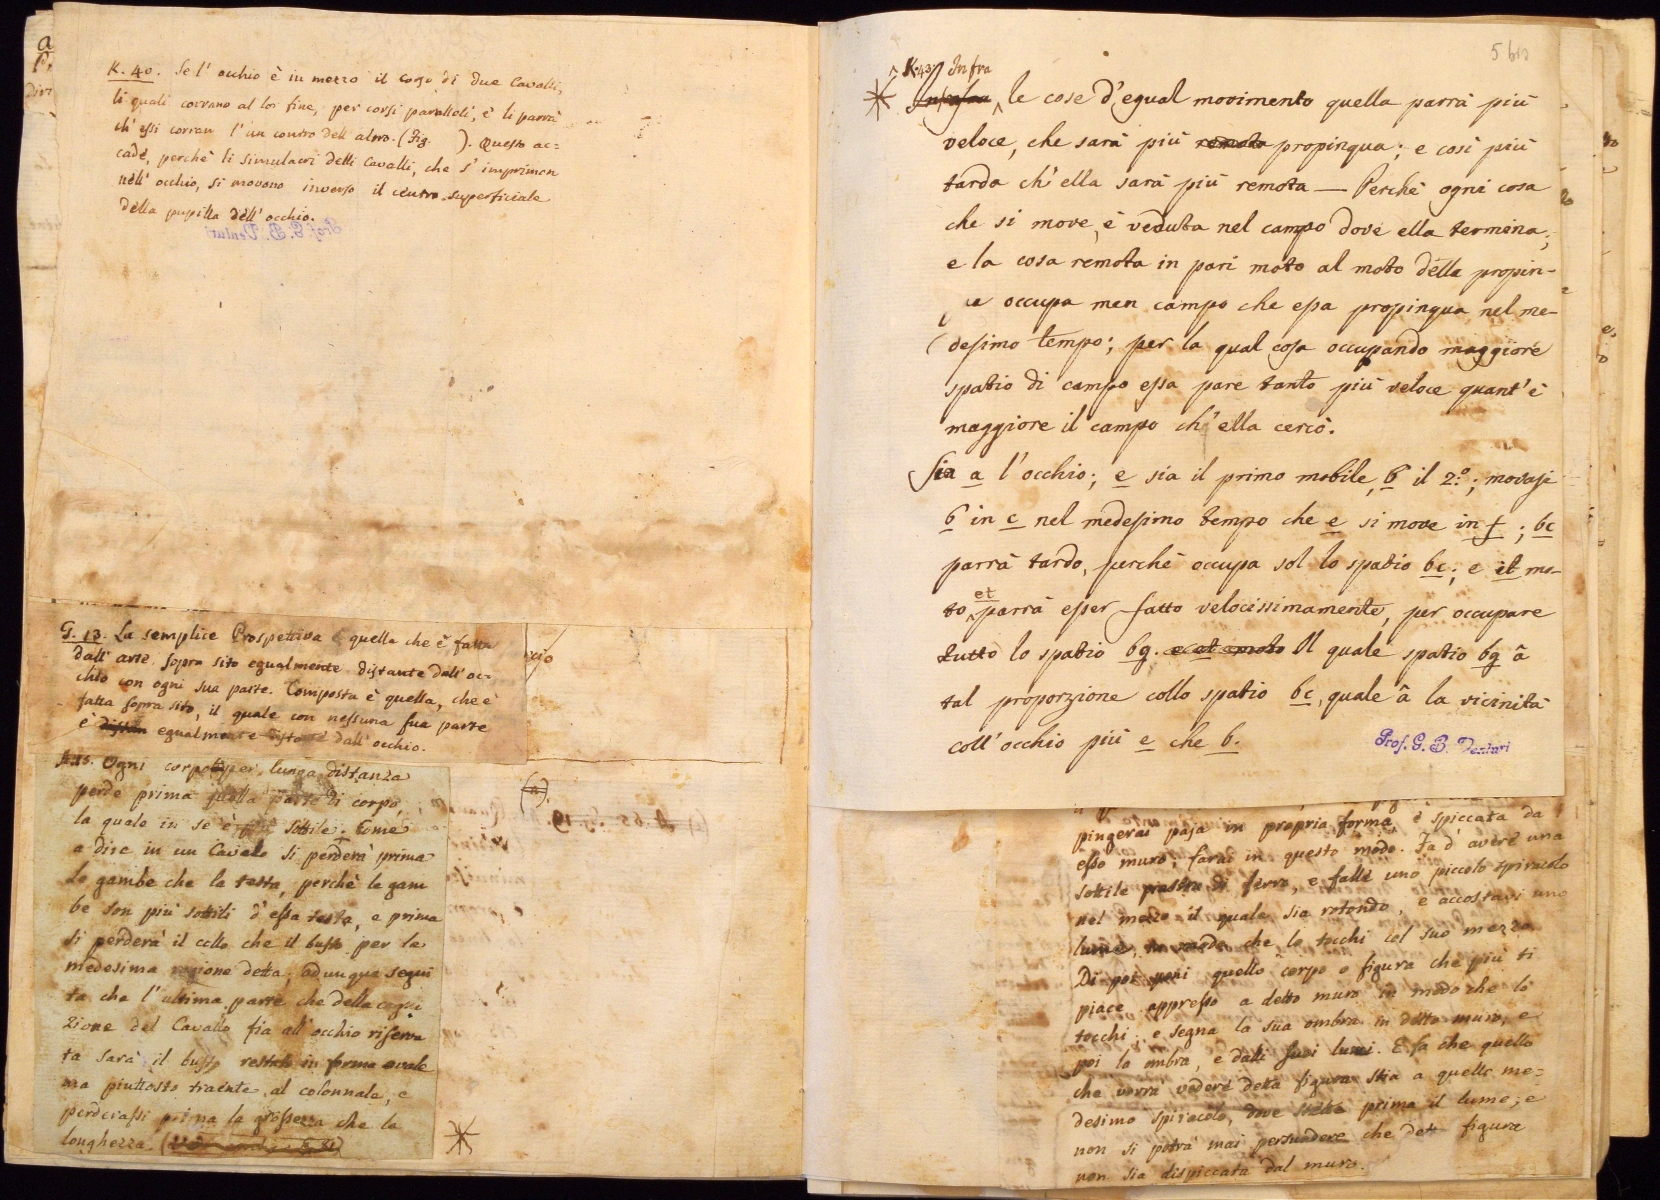 K. 40. Se l' occhio è in mezzo il corso di due Cavalli,
li quali corrano al lor fine, per corsi paralleli, e' li parrà
ch' essi corran l' un contro dell' altro. (Fig. ). Questo ac=
cade, perchè li simulacri delli Cavalli, che s' imprimon
nell' occhio, si movono inverso il centro superficiale
della pupilla dell' occhio.
Prof. G. B. Venturi
G. 13. La semplice Prospettiva è quella che è fatta
dall' arte sopra sito egualmente distante dall' oc=
chio con ogni sua parte. Composta è quella, che è
fatta sopra sito, il quale con nessuna sua parte
è egualmente distante dall' occhio.
Ogni corpo per lunga distanza
perde prima quella parte di corpo,
la quale in se è più sottile. Come
a dire in un Cavalo si perderà prima
le gambe che la testa, perchè le gam
be son più sottili d' essa testa, e prima
si perderà il collo che il busto per la
medesima ragione detta; adunque segui
ta che l' ultima parte che della cogni
zione del Cavallo fia all' occhio riserva
ta sarà il busto restato in forma ovale
ma piuttosto traente al colonnale, e
perderassi prima la grossezza che la
longhezza
(n).
A. 65. 19.
5 bis
K. 43. Infra
le cose d' egual movimento quella parrà più
veloce, che sarà più remota propinqua; e così più
tarda ch' ella sarà più remota — Perchè ogni cosa
che si move, è veduta nel campo dove ella termina;
e la cosa remota in pari moto al moto della propin-
ua occupa men campo che essa propinqua nel me-
desimo tempo; per la qual cosa occupando maggiore
spatio di campo essa pare tanto più veloce quant' è
maggiore il campo ch' ella cercò.
Sia a l' occhio; e sia il primo mobile, b il 2.º; movasi
b in c nel medesimo tempo che e si move in f; bc
parrà tardo, perchè occupa sol lo spatio bc; e il mo-
to et parrà esser fatto velocissimamente, per occupare
tutto lo spatio bg. Il quale spatio bg â
tal proporzione collo spatio bc, quale â la vicinità
coll' occhio più e che b.
Prof. G. B. Venturi
pingerai paja in propria forma, è spiccata da
esso muro; farai in questo modo. Fa d' avere una
sottile piastra di ferro, e falle uno piccolo spiracolo
nel mezzo il quale sia rotondo, e accostavi uno
lume, in modo che lo tocchi col suo mezzo.
Di poi poni quello corpo o figura che più ti
piace appresso a detto muro in modo che lo
tocchi; e segna la sua ombra in detto muro, e
poi la ombra, e dalli suoi lumi. E fa che quello
che vorrà vedere detta figura stia a quello me=
desimo spiracolo, dove stette prima il lume; e
non si potrà mai persuadere che detta figura
non sia dispiccata dal muro.